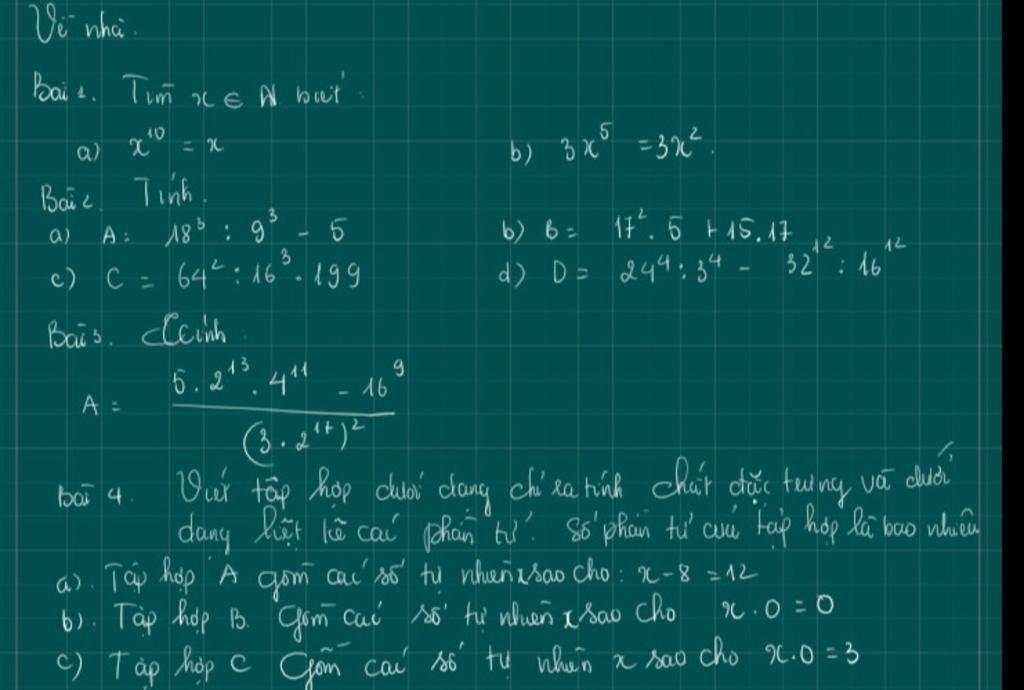 Về nhà.
Bài 1. Tìm x ∈ N biết:
a) x^10 = x b) 3x^5 = 3x^2.
Bài 2. Tính.
a) A = 18^3 : 9^3 - 5 b) B = 17^2 . 5 + 15.17
c) C = 64^2 : 16^3 . 199 d) D = 24^4 : 3^4 - 32^12 : 16^12
Bài 3. Tính:
A = (5 . 2^13 . 4^11 - 16^9) / (3 . 2^17)^2
Bài 4. Viết tập hợp dưới dạng chỉ ra tính chất đặc trưng và dưới
dạng liệt kê các phần tử. Số phần tử của tập hợp là bao nhiêu
a). Tập hợp A gồm các số tự nhiên x sao cho: x - 8 = 12
b). Tập hợp B. Gồm các số tự nhiên x sao cho x . 0 = 0
c) Tập hợp C Gồm các số tự nhiên x sao cho x.0 = 3